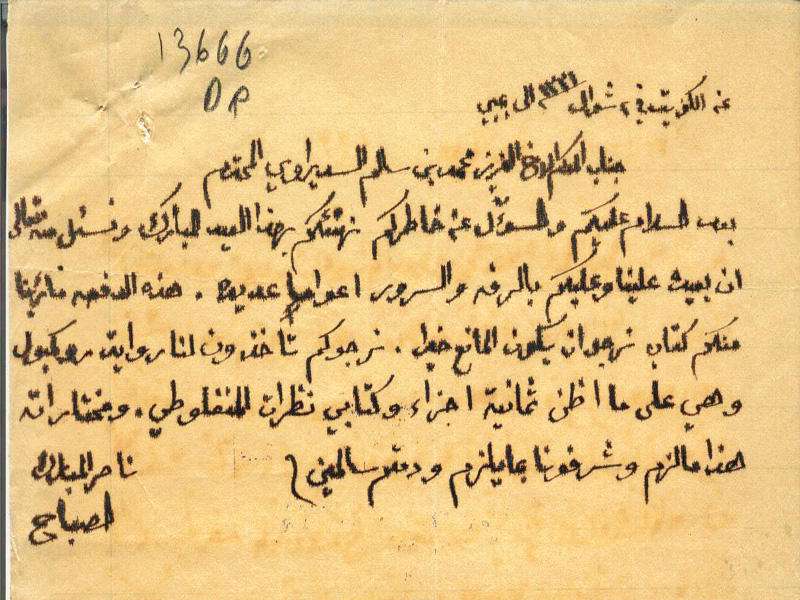 13666
DR
عن الكويت في ٢ شوال ١٣٣١ الى بمبي
جناب المكرم الاخ العزيز محمد بن سالم السديراوي المحترم
بعد السلام عليكم والسؤال عن خاطركم نهنئكم بهذا العيد المبارك ونسئل منه تعالى
ان يعيده علينا وعليكم بالرفه والسرور اعواماً عديده . هذه الدفعه ما رأينا
منكم كتاب نرجو ان يكون المانع خيرا . نرجوكم تأخذون لنا روايت روكمبول
وهي على ما اظن ثمانية اجزاء وكتابي نظرات المنفلوطي . ومختاراته
هذا مالزم وشرفونا بما يلزم ودمتم سالمين
ناصر المبارك
الصباح